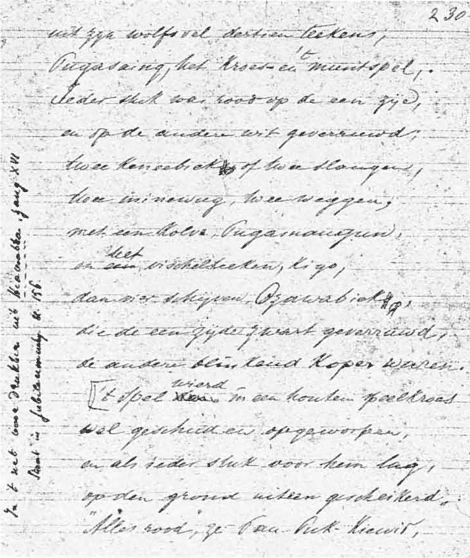 230
uit zyn wolfsvel dertien teekens,
Pugasaing, het kroes- en 't muntspel,
Ieder stuk was rood op de een zije,
en op de andere wit geverruwd;
twee Keneebiek of twee slangen,
twee ininewug, twee weggen,
met een kolve, Pugamaugun,
en het vischelteeken, Kigo,
dan vier schijven, Ozawabiek,
die de een zijde zwart geverruwd,
de andere blinkend koper waren.
['t Spel wierd in een houten kroes
wel geschud en opgeworpen,
en als ieder stuk voor hem lag,
op den grond uiteen gescheiterd,
"Alles rood", ze Pau-Puk-Kiewis,
In 't net voor drukken uit zang XVI
Staat in Jubileumuitg. bl. 156